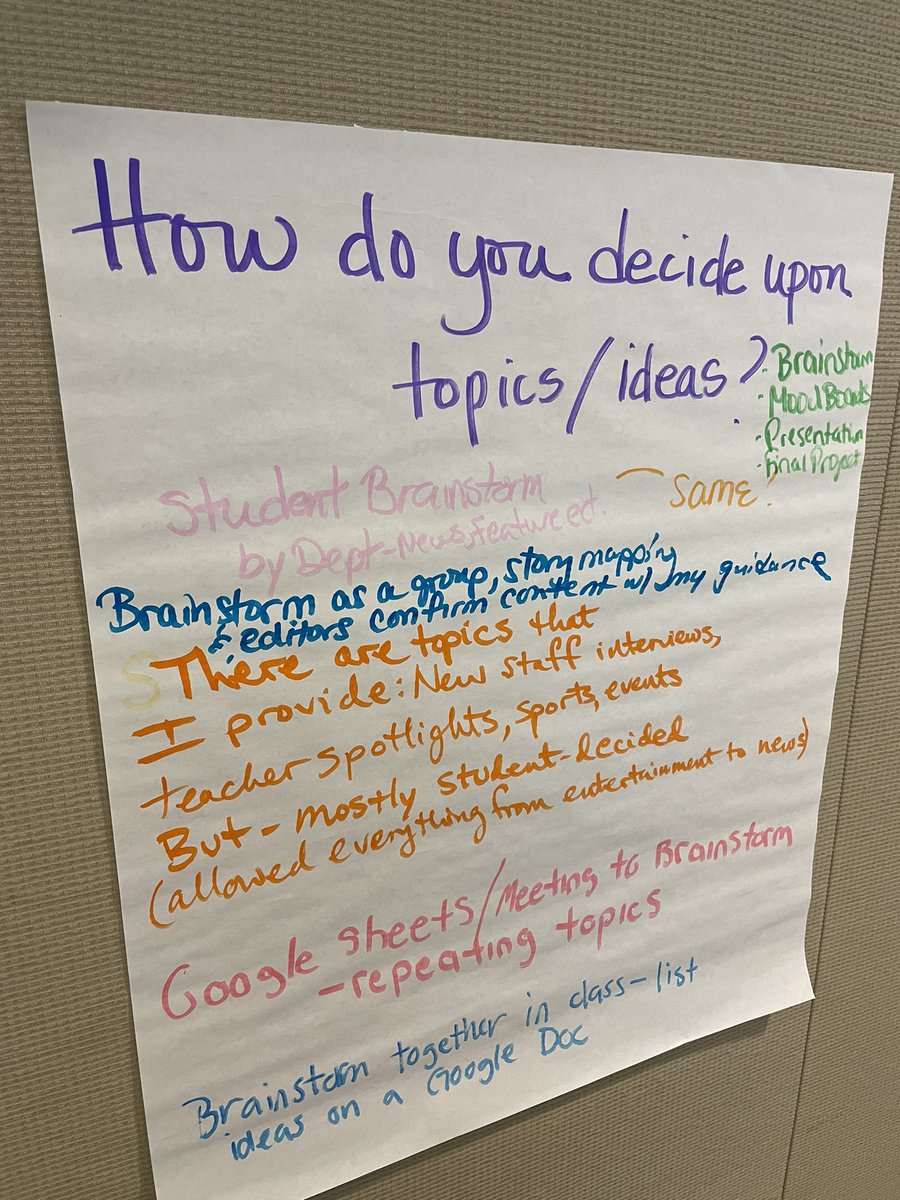 How do you decide upon
topics/ideas?
· Brainstorm
· Mood Boards
· Presentation
· Final Project
Student Brainstorm
by Dept-News, Feature, ect.
Same!
Brainstorm as a group, story mapping
& editors confirm content w/ my guidance
There are topics that
I provide: New staff interviews,
teacher spotlights, sports, events
But - mostly student-decided
(allowed everything from entertainment to news)
Google Sheets/Meeting to Brainstorm
-repeating topics
Brainstorm together in class-list
ideas on a Google Doc